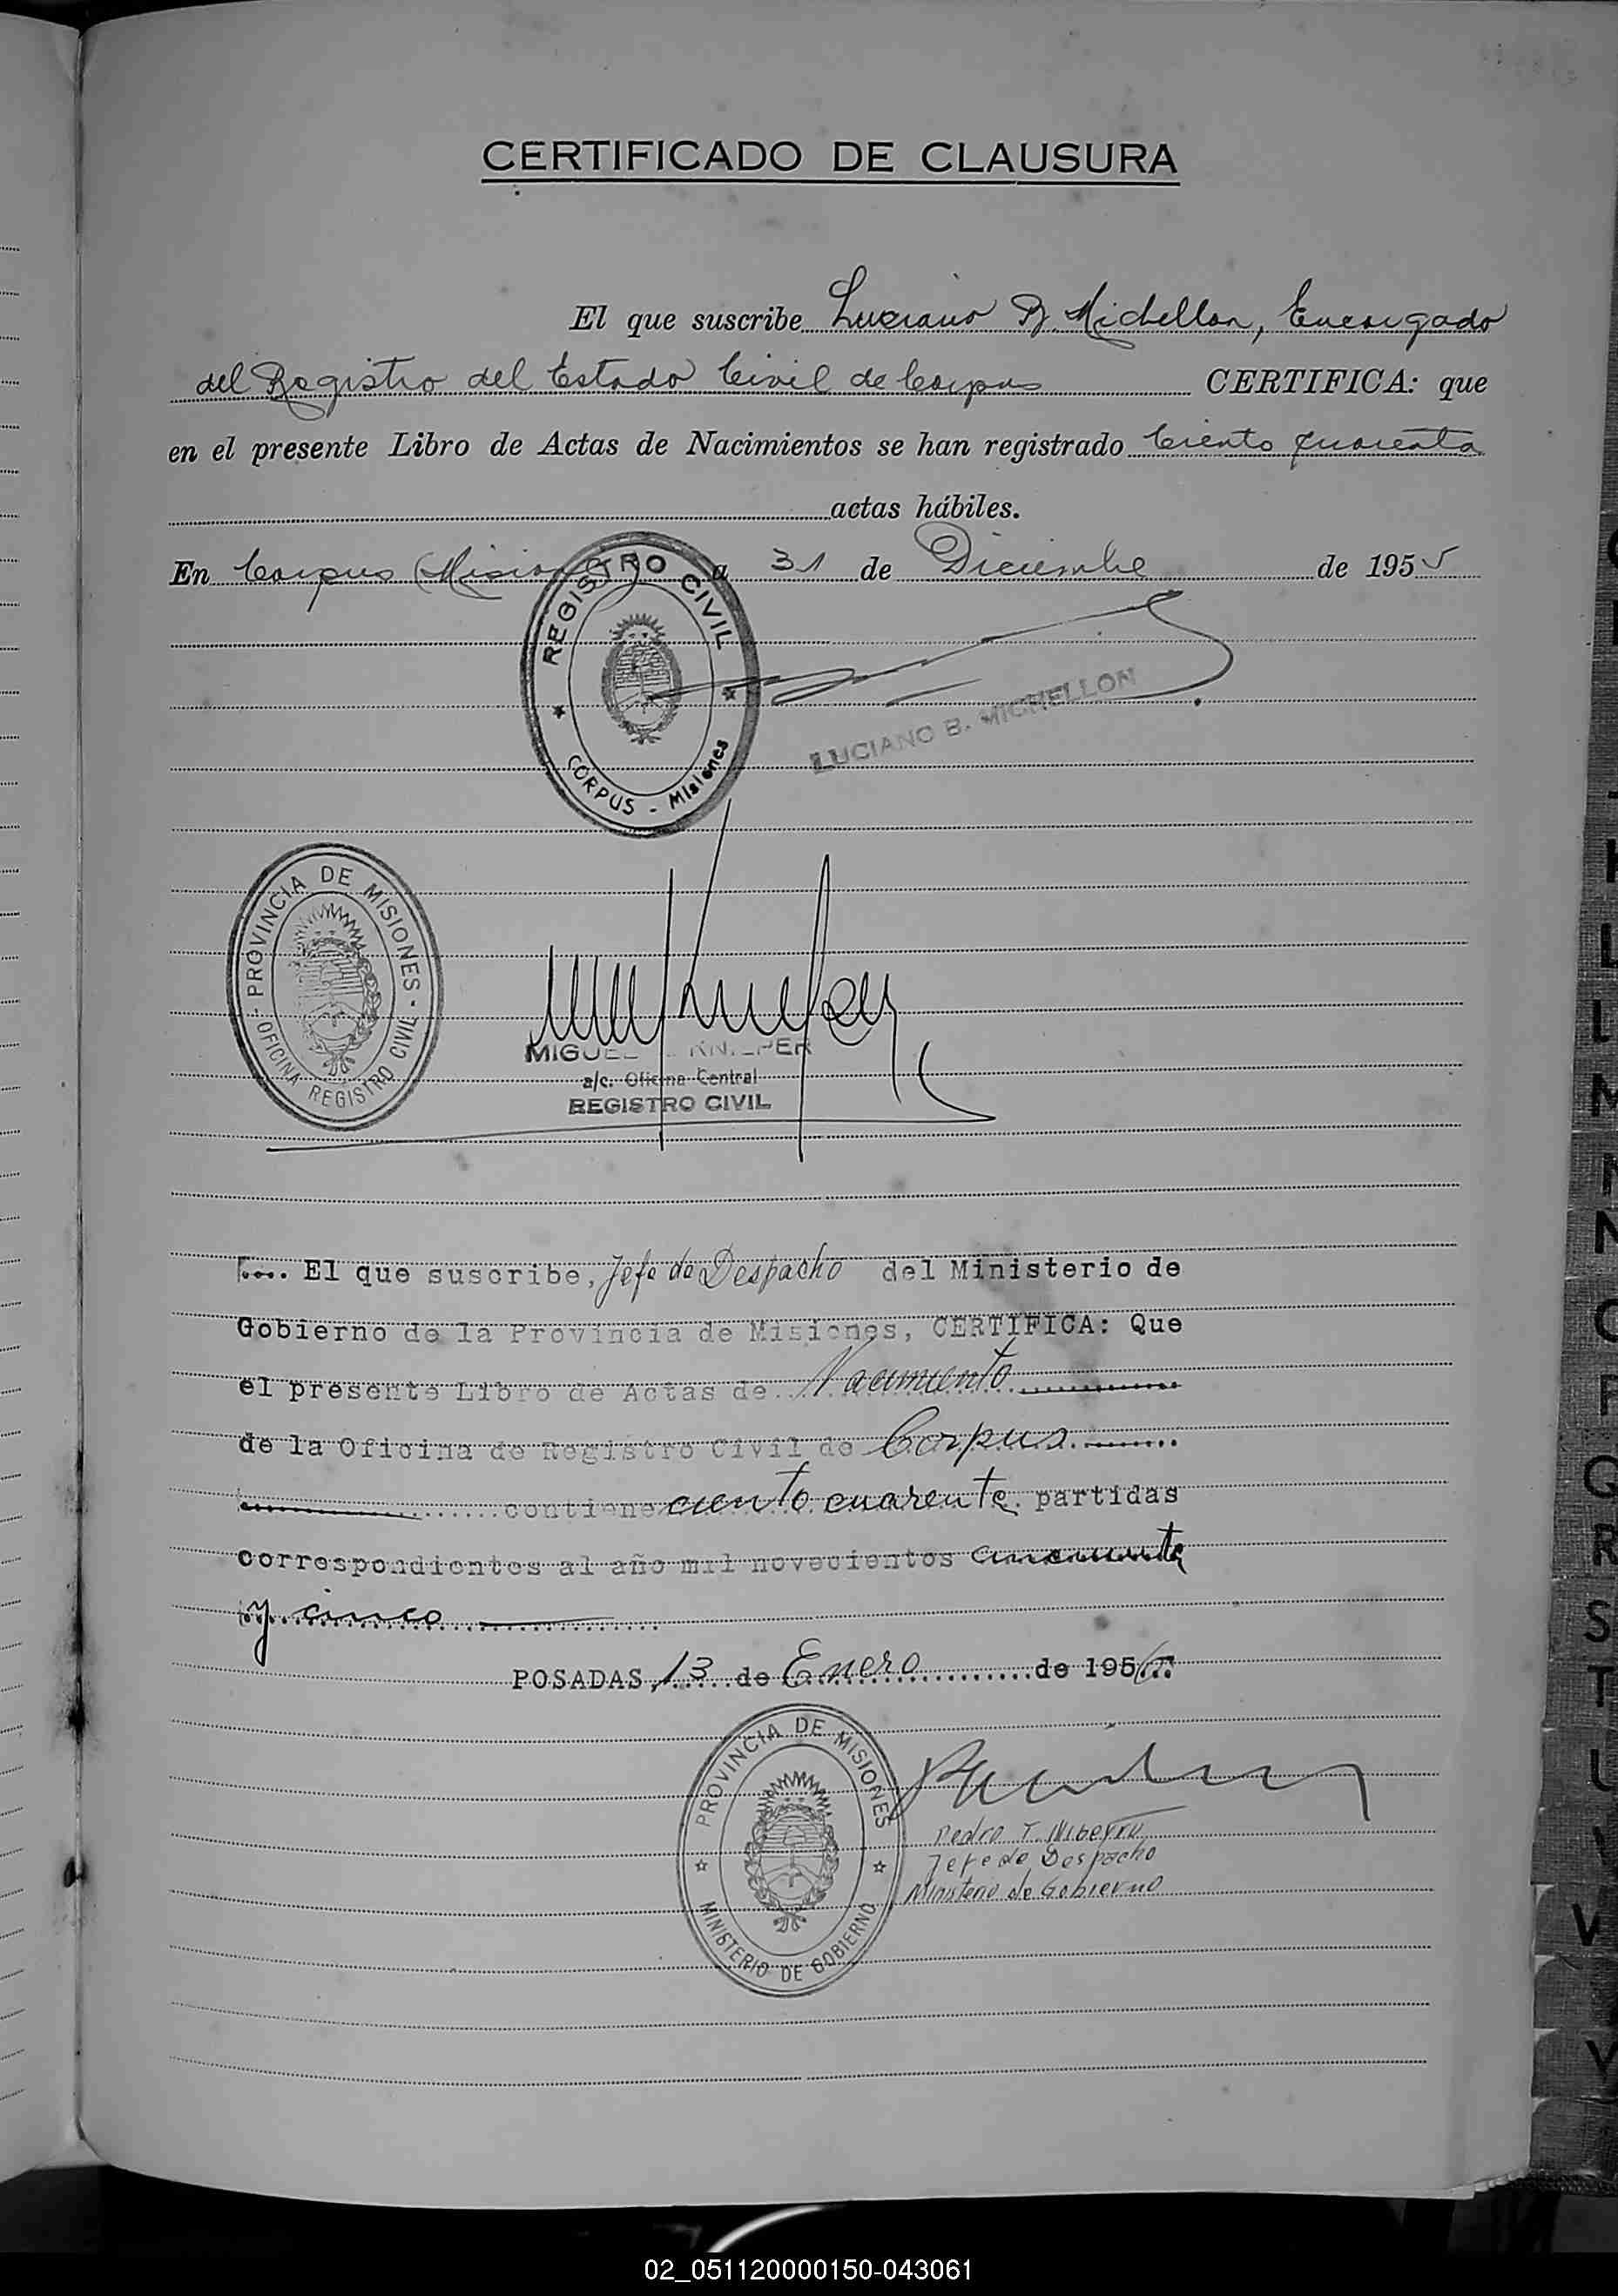 CERTIFICADO DE CLAUSURA
El que suscribe Luciano B. Michellon, Encargado
del Registro del Estado Civil de Corpus CERTIFICA: que
en el presente Libro de Actas de Nacimientos se han registrado Ciento cuarenta
actas hábiles.
En Corpus (Misiones) a 31 de Diciembre de 1955
REGISTRO CIVIL
CORPUS - Misiones
LUCIANO B. MICHELLON
PROVINCIA DE MISIONES -
OFICINA REGISTRO CIVIL -
MIGUEL
a/c. Oficina Central
REGISTRO CIVIL
El que suscribe, Jefe de Despacho del Ministerio de
Gobierno de la Provincia de Misiones, CERTIFICA: Que
el presente Libro de Actas de Nacimiento
de la Oficina de Registro Civil de Corpus
contiene ciento cuarenta partidas
correspondientes al año mil novecientos cincuenta
y cinco
POSADAS, 13 de Enero de 1956
PROVINCIA DE MISIONES
MINISTERIO DE GOBIERNO
Pedro T.
Jefe de Despacho
Ministerio de Gobierno
L
M
N
O
P
Q
R
S
T
U
V
Y
02_051120000150-043061